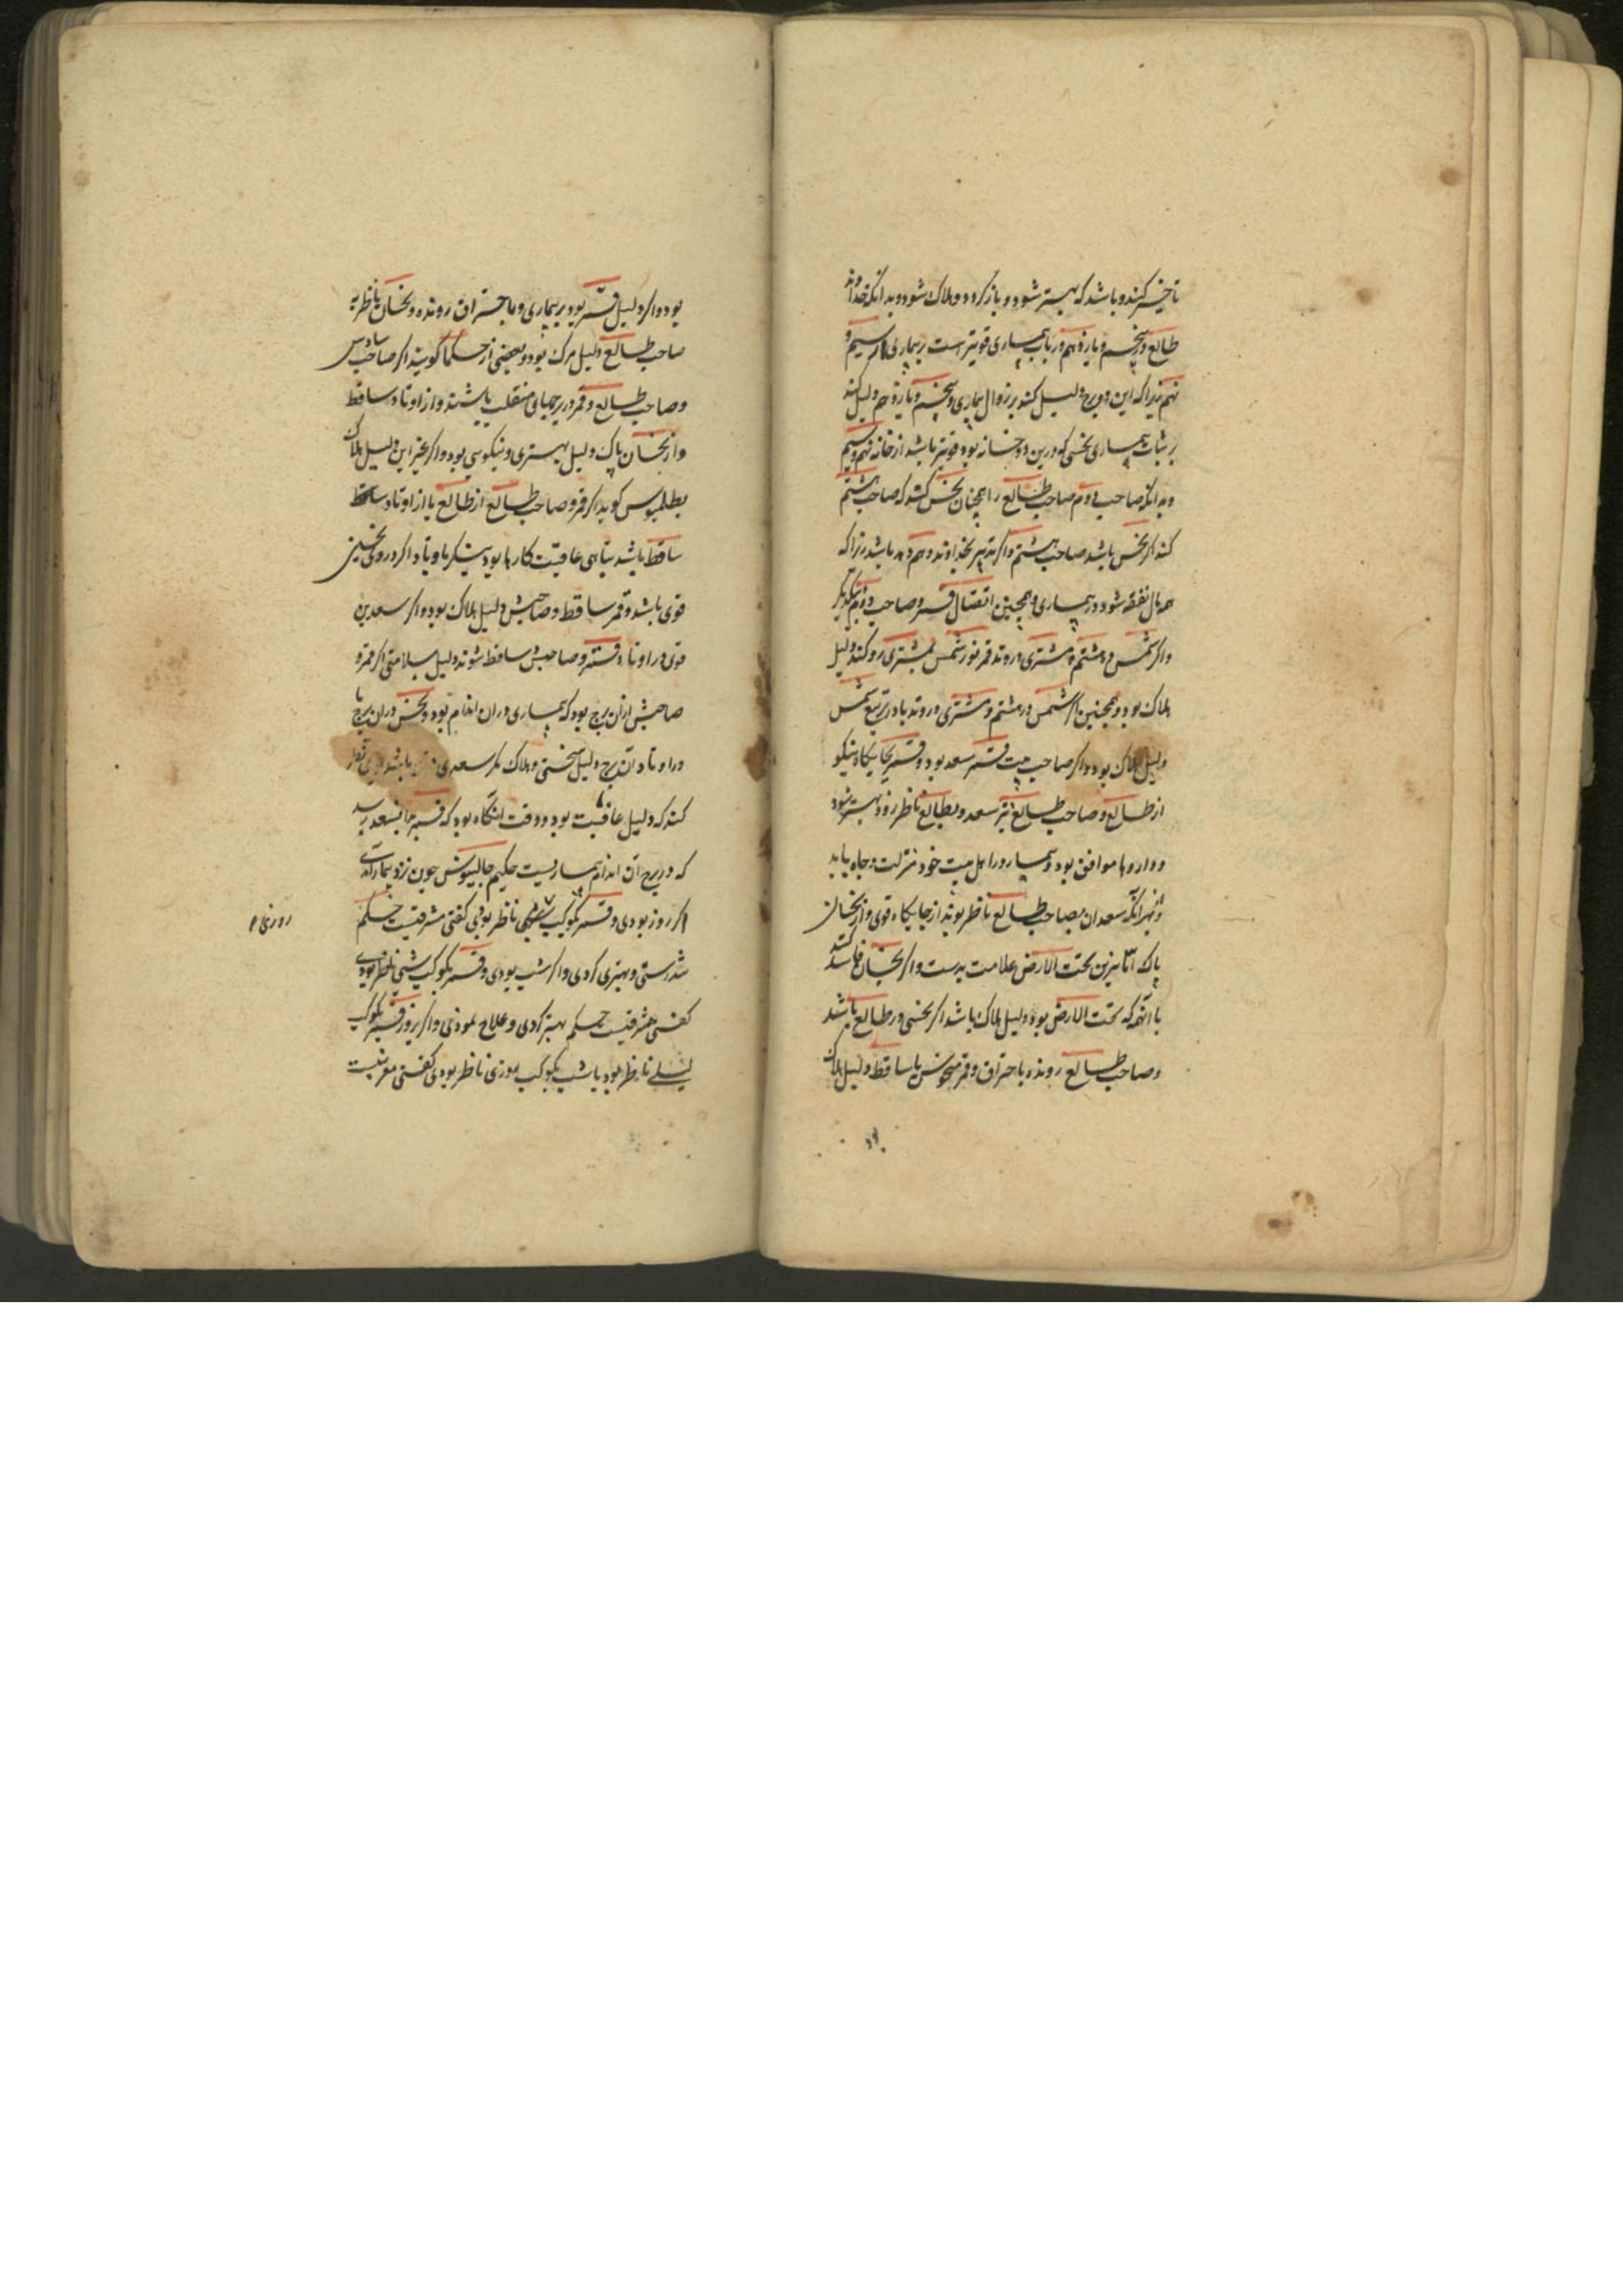 تاخیر کند و باشد که بهتر شود و باز کردد و هلاک شود و بدانکه خداوند
طالع در پنجم و یازدهم در باب بیماری قویتر است بر بیماری از سیم و
نهم زیرا که این دو برج دلیل کند بر زوال بیماری و پنجم و یازدهم دلیل کند
بر ثبات بیماری نحسی که درین دو خانه بود قویتر باشد از خانه نهم و سیم
و بدانکه صاحب دوم صاحب طالع را همچنان نحس کند که صاحب هشتم
کند اگر نحس باشد صاحب هشتم و اگر تدبیر بخداوند دوهم دهد باشد زیرا که
همه مال نفقه شود در بیماری و همچنین اتصال قمر و صاحب دوم بیکدیگر
و اگر شمس در هشتم و مشتری در وتد قمر نور شمس بمشتری رو کند دلیل
هلاک بود و همچنین اگر شمس در هشتم و مشتری در وتد یا در تربیع شمس
دلیل هلاک بود و اگر صاحب بیت قمر سعد بود و قمر بجایکاه نیکو
از طالع و صاحب طالع نیز سعد و بطالع ناظر زود بهتر شود
و داروها موافق بود و بیمار در اهل بیت خود منزلت و جاه یابد
و بهر آنکه سعدان بصاحب طالع ناظر بوند از جایکاه قوی و از نحسان
پاک اما بزین تحت الارض علامت بدست و اگر نحسان فاسد کنند
با آنهمه که تحت الارض بود دلیل هلاک باشد اگر نحسی در طالع باشد
و صاحب طالع رونده باحتراق و قمر منحوس یا ساقط دلیل هلاک
بود و اگر دلیل قمر بود بر بیماری و باحتراق رونده و نحسان ناظر به
صاحب طالع دلیل مرک بود و بعضی از حکما گویند اگر صاحب سادس
و صاحب طالع و قمر در برجهای منقلب باشند و از اوتاد ساقط
و از نحسان پاک دلیل بهتری و نیکوسی بود و اگر غیر این دلیل هلاک
بطلمیوس گوید اگر قمر و صاحب طالع از طالع یا از اوتاد ساقط
ساقط باشد تباهی عاقبت کارها بود بنیکر باوتاد اگر درو نحسین
قوی باشد و قمر ساقط و صاحبش دلیل هلاک بود و اگر سعدین
قوی در اوتاد و قمر و صاحبش ساقط شوند دلیل سلامتی اگر قمر و
صاحبش از آن برج بود که بیماری در آن اندام بود و نحس در آن برج یا
در اوتاد آن برج دلیل سختی و هلاک مکر سعدی قوی باشد نظر
کند که دلیل عافیت بود و وقت آنگاه بود که قمر بدان سعد رسد
که در برج آن اندام بیماریست حکیم جالینوس چون نزد بیمار آمدی
اگر روز بودی و قمر بکوکب ناظر بودی کفتی مشرقیست حکم
تندرستی و بهتری کردی و اگر شب بودی و قمر بکوکب شبی ناظر بودی
کفتی مشرقیست حکم بهتر کردی و علاج نمودی و اگر بروز قمر بکوکب
لیلی ناظر بود یا شب بکوکب روزی ناظر بودی کفتی مغربیست
روزی